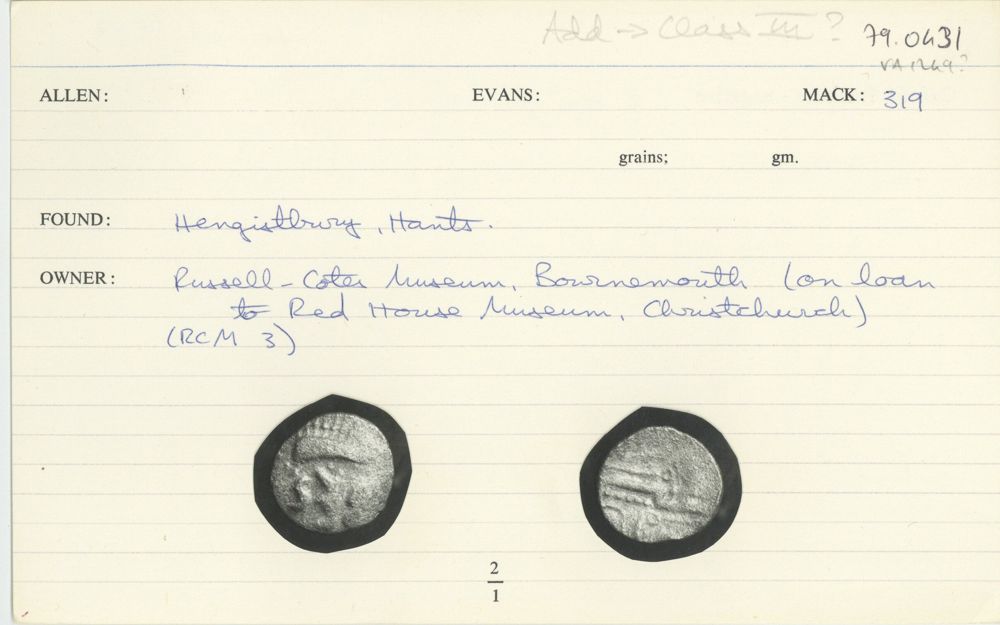 Add → Class III? 79.0431
VA 1249?
ALLEN: EVANS: MACK: 319
grains; gm.
FOUND: Hengistbury, Hants.
OWNER: Russell-Cotes Museum, Bournemouth (on loan
to Red House Museum, Christchurch)
(RCM 3)
2
1